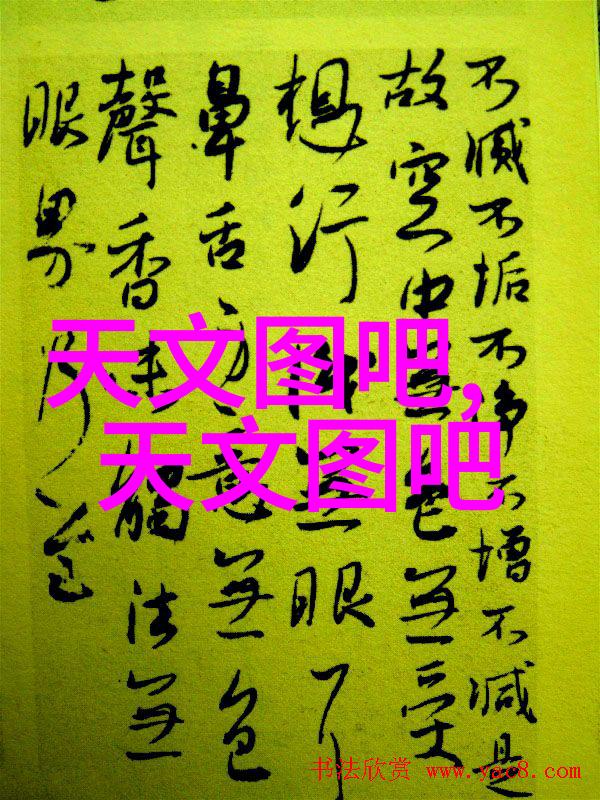 不滅不垢不净不增不減是
故空中無色無受
想行識無眼耳
鼻舌身意無色
聲香味觸法無
眼界乃至
天文图吧,
天文图吧
书法欣赏 www.yac8.com